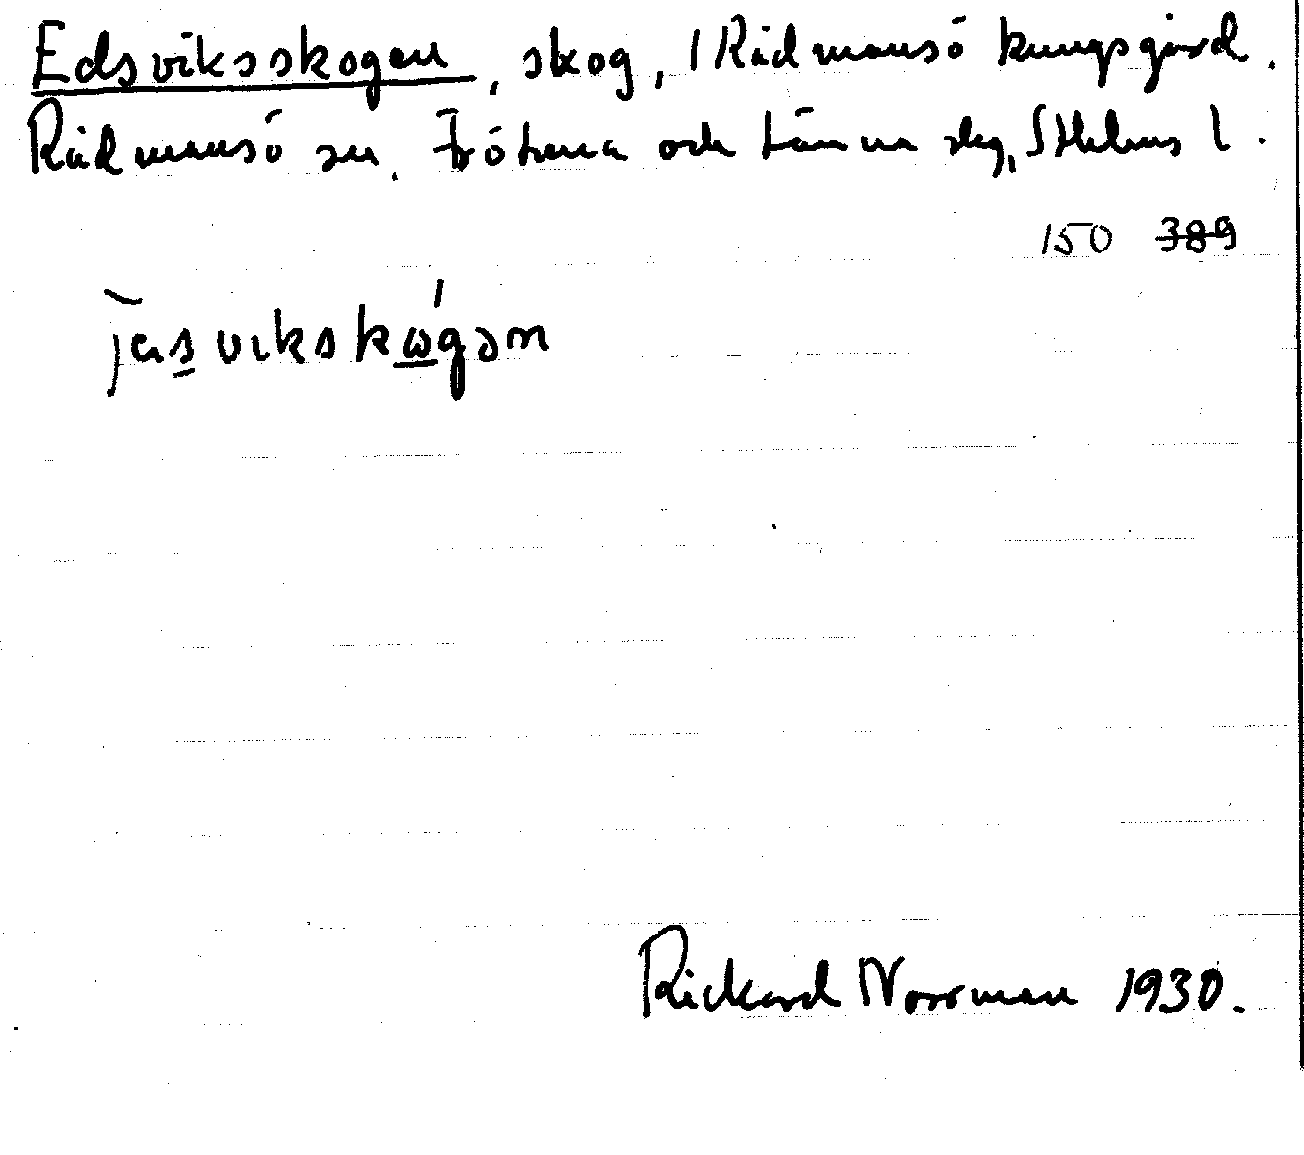 Edsviksskogen, skog, i Rådmansö kungsgård.
Rådmansö sn. Frötuna och Länna skg, Sthlms l.
150 389
jas vikskωgən
Rickard Norrman 1930.